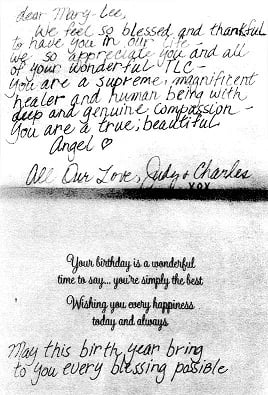 dear Mary-Lee,
We feel so blessed and thankful
to have you in our life -
we so appreciate you and all
of your wonderful TLC -
You are a supreme, magnificent
healer and human being with
deep and genuine compassion -
You are a true, beautiful
Angel ♡
All Our Love, Judy & Charles
XOX
Your birthday is a wonderful
time to say... you're simply the best
Wishing you every happiness
today and always
May this birth year bring
to you every blessing possible